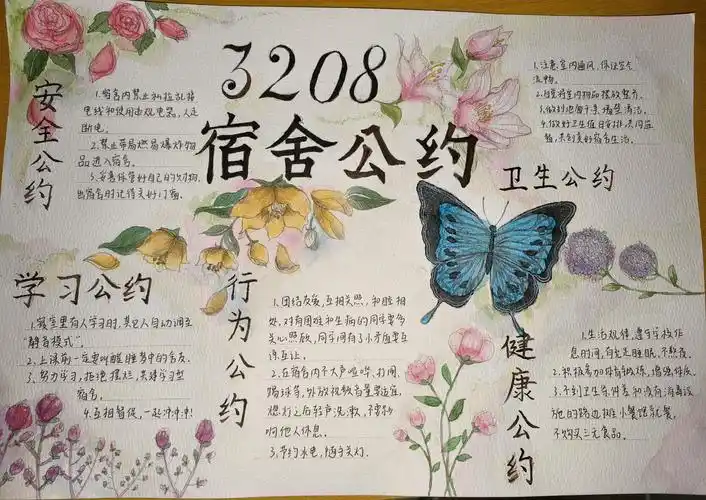 3208
宿舍公约
安全公约
1.宿舍内禁止私拉乱接
电线和使用违规电器,人走
断电。
2.禁止带易燃易爆炸物
品进入宿舍。
3.妥善保管好自己的财物,
出宿舍时记得关好门窗。
卫生公约
1.注意室内通风,保证空气
流畅。
2.自觉将室内物品摆放整齐。
3.做到地面干亲、墙壁清洁。
4.做好卫生值日安排,共同监
督,共创美好宿舍生活。
学习公约
1.寝室里有人学习时,其它人自动调至
“静音模式”。
2.上课前一定要叫醒睡梦中的舍友。
3.努力学习,拒绝摆烂,共建学习型
宿舍。
4.互相督促,一起冲冲冲!
行为公约
1.团结友爱,互相关照,和睦相
处,对有困难和生病的同学要多
关心照顾,同学间有了小矛盾要互
谅互让。
2.在宿舍内不大声喧哗、打闹、
踢球等,外放视频音量要适宜,
熄灯之后轻声洗漱,不影
响他人休息。
3.节约水电,随手关灯。
健康公约
1.生活规律,遵守学校作
息时间,有充足睡眠,不熬夜。
2.积极参加体育锻炼,增强体质。
3.不到卫生条件差和没有消毒设
施的路边摊、小餐馆就餐,
不购买三无食品。